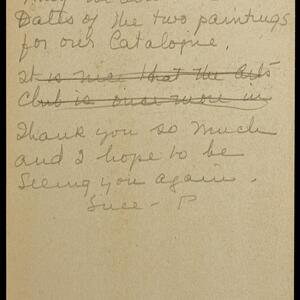 Dates of the two paintings
for our Catalogue.
It is nice that the Arts
Club is once more in
Thank you so much
and I hope to be
seeing you again.
Since - P